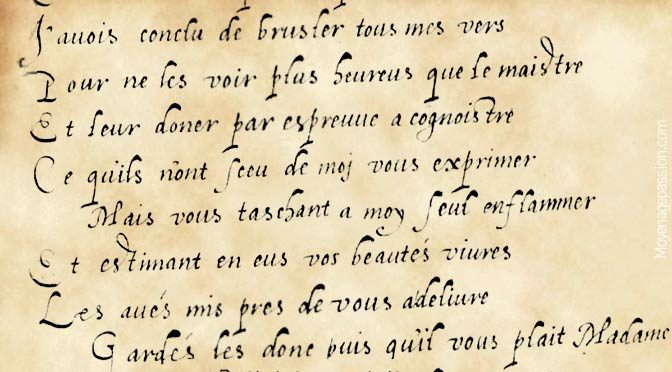 J'auois conclu de brusler tous mes vers
Pour ne les voir plus heureus que le maistre
Et leur doner par espreuue a cognoistre
Ce qu'ils n'ont sceu de moj vous exprimer
Mais vous taschant a moy seul enflammer
Et estimant en eus vos beautés viures
Les aués mis pres de vous a deliure
Gardés les donc puis qu'il vous plait Madame
Moyenagepassion.com